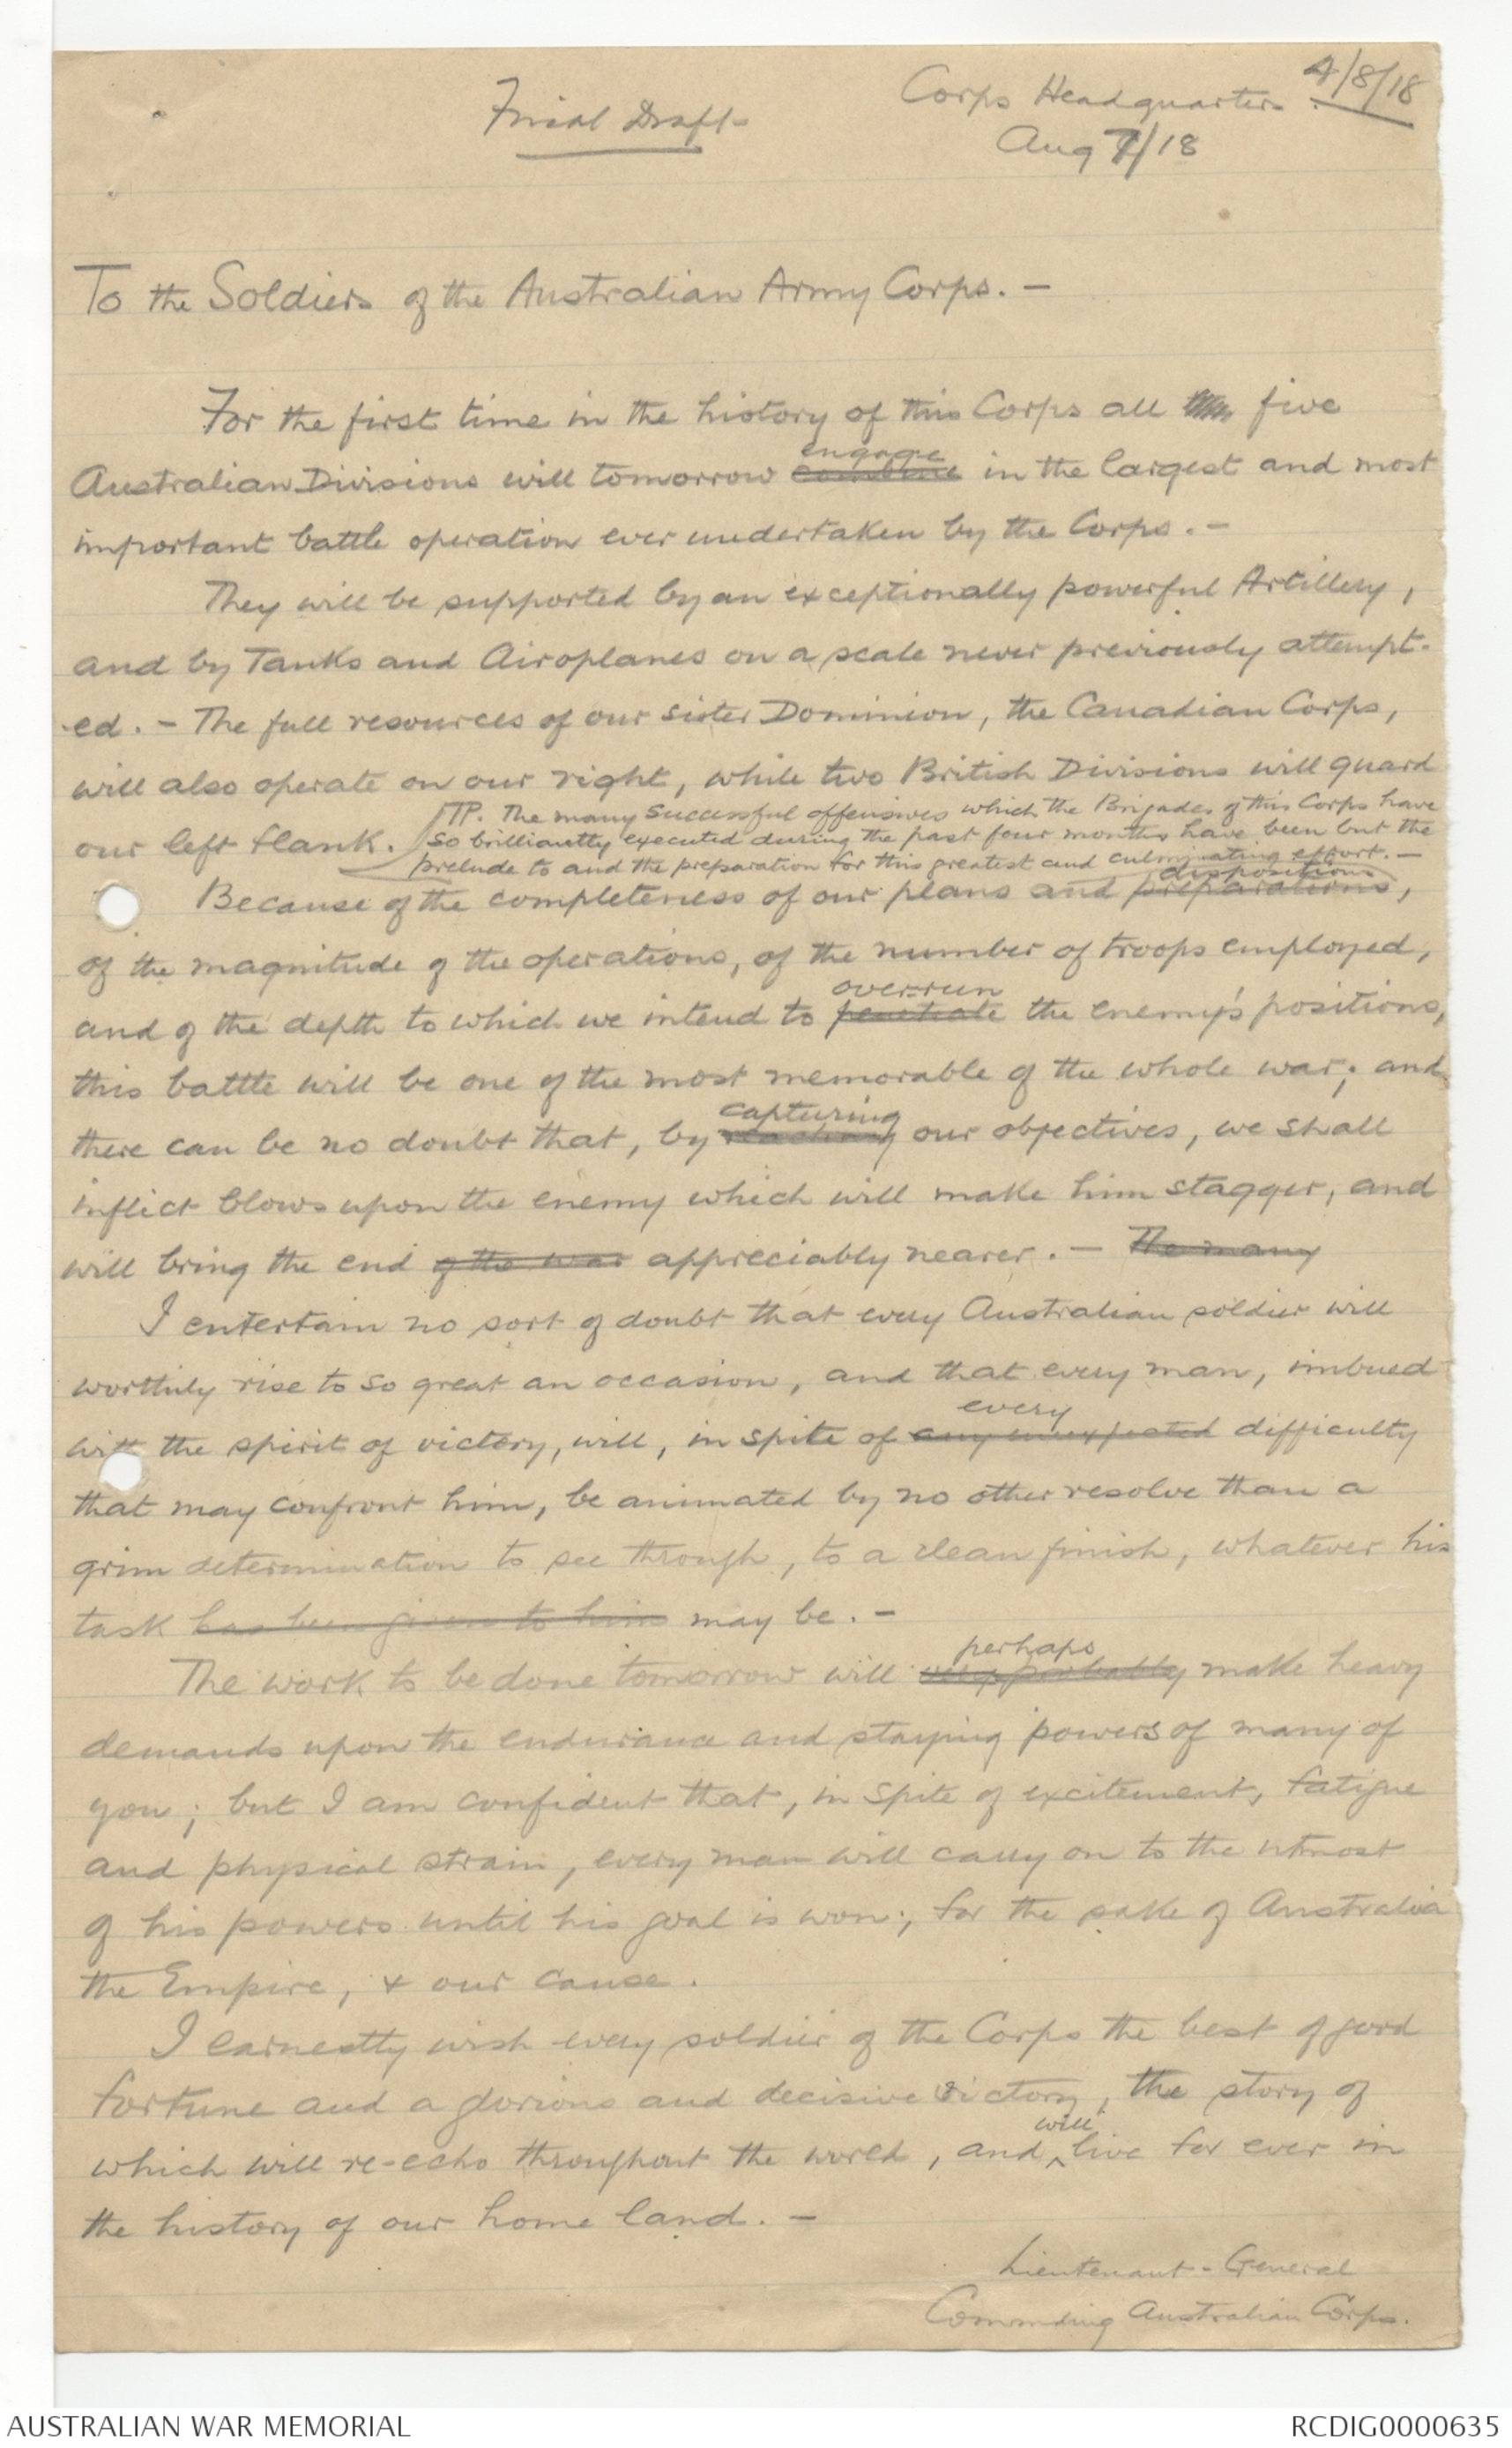 4/8/18
Final Draft
Corps Headquarters.
Aug 7/18
To the Soldiers of the Australian Army Corps. —
For the first time in the history of this Corps all five
engage
Australian Divisions will tomorrow combine in the largest and most
important battle operation ever undertaken by the Corps. —
They will be supported by an exceptionally powerful Artillery,
and by Tanks and Airoplanes on a scale never previously attempt-
-ed. — The full resources of our sister Dominion, the Canadian Corps,
will also operate on our right, while two British Divisions will guard
our left flank.
TP. The many successful offensives which the Brigades of this Corps have
so brilliantly executed during the past four months have been but the
prelude to and the preparation for this greatest and culminating effort. —
dispositions
Because of the completeness of our plans and preparations,
of the magnitude of the operations, of the number of troops employed,
overrun
and of the depth to which we intend to penetrate the enemy's positions,
this battle will be one of the most memorable of the whole war; and
capturing
there can be no doubt that, by reaching our objectives, we shall
inflict blows upon the enemy which will make him stagger, and
will bring the end of the war appreciably nearer. — The many
I entertain no sort of doubt that every Australian soldier will
worthily rise to so great an occasion, and that every man, imbued
every
with the spirit of victory, will, in spite of any unexpected difficulty
that may confront him, be animated by no other resolve than a
grim determination to see through, to a clean finish, whatever his
task has been given to him may be. —
perhaps
The work to be done tomorrow will very probably make heavy
demands upon the endurance and staying powers of many of
you; but I am confident that, in spite of excitement, fatigue
and physical strain, every man will carry on to the utmost
of his powers until his goal is won; for the sake of Australia
the Empire, & our cause.
I earnestly wish every soldier of the Corps the best of good
fortune and a glorious and decisive victory, the story of
will
which will re-echo throughout the world, and live for ever in
the history of our home land. —
Lieutenant-General
Commding Australian Corps.
AUSTRALIAN WAR MEMORIAL
RCDIG0000635